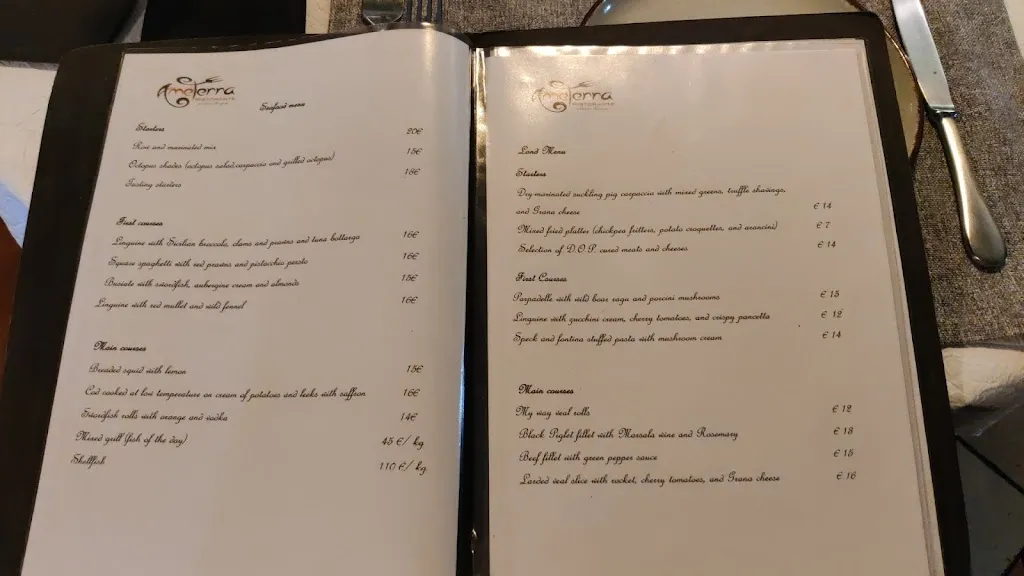 AmoTerra
RISTORANTE
Seafood menu
Starters
Raw and marinated mix 20€
Octopus shades (octopus salad,carpaccio and grilled octopus) 15€
Tasting starters 18€
First courses
Linguine with Sicilian broccolo, clams and prawns and tuna bottarga 16€
Square spaghetti with red prawns and pistacchio pesto 16€
Busiate with swordfish, aubergine cream and almonds 15€
Linguine with red mullet and wild fennel 16€
Main courses
Breaded squid with lemon 15€
Cod cooked at low temperature on cream of potatoes and leeks with saffron 16€
Swordfish rolls with orange and vodka 14€
Mixed grill (fish of the day) 45 €/ kg
Shellfish 110 €/ kg
AmoTerra
RISTORANTE
Land Menu
Starters
Dry-marinated suckling pig carpaccio with mixed greens, truffle shavings,
and Grana cheese € 14
Mixed fried platter (chickpea fritters, potato croquettes, and arancini) € 7
Selection of D.O.P. cured meats and cheeses € 14
First Courses
Parpadelle with wild boar ragu and porcini mushrooms € 15
Linguine with zucchini cream, cherry tomatoes, and crispy pancetta € 12
Speck and fontina stuffed pasta with mushroom cream € 14
Main courses
My way veal rolls € 12
Black Piglet fillet with Marsala wine and Rosemary € 18
Beef fillet with green pepper sauce € 15
Larded veal slice with rocket, cherry tomatoes, and Grana cheese € 16